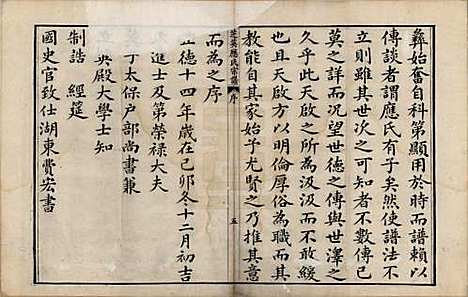 彝始奮自科第顯用於時而譜賴以
傳談者謂應氏有子矣然使譜法不
立則雖其世次之可知者不數傳已
莫之詳而況望世德之傳與世澤之
久乎此天啟之所為汲汲而不敢緩
也且天啟方以明倫厚俗為職而其
教能自其家始子尤賢之乃推其意
芝英應氏宗譜
序
五
而為之序
正德十四年歲在己卯冬十二月初吉
進士及第榮祿大夫
少太保戶部尚書兼
武英殿大學士知
制誥 經筵
國史官致仕湖東費宏書